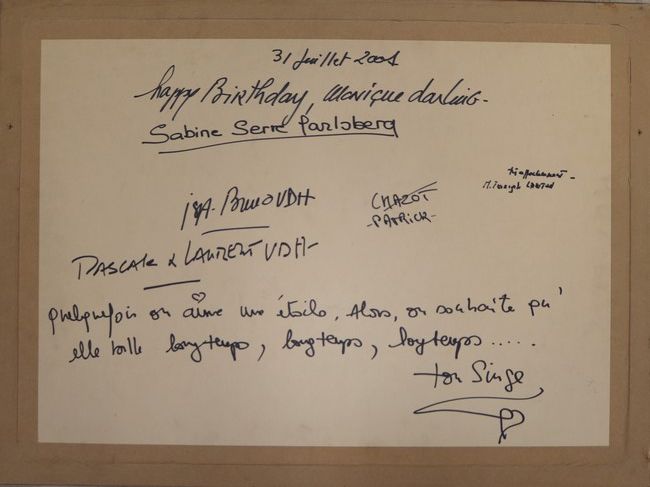 31 Juillet 2001
happy Birthday, Monique darling-
Sabine Serré
CHAZOT
-PATRICK-
PASCALE & LAURENT VDH-
quelquefois on aime une étoile, Alors, on souhaite qu'
elle brille longtemps, longtemps, longtemps.....
ton Singe